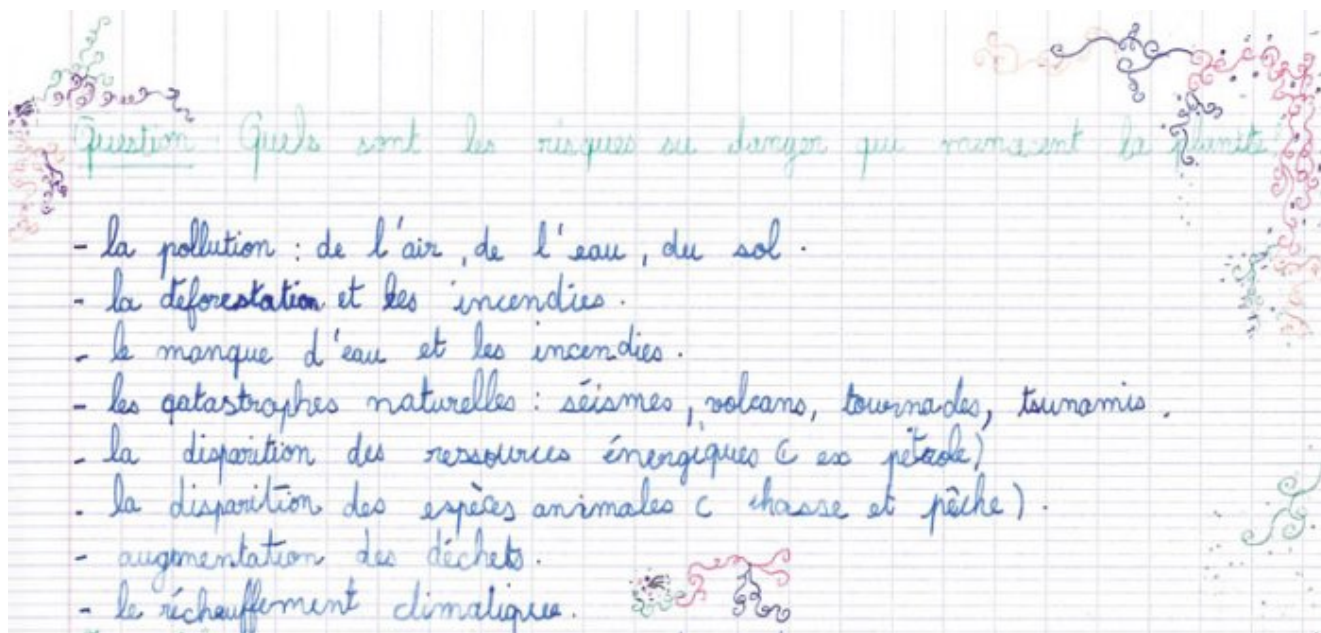 Question Quels sont les risques ou danger qui menacent la planète
- la pollution : de l'air, de l'eau, du sol.
- la déforestation et les incendies.
- le manque d'eau et les incendies.
- les qatastrophes naturelles : séismes, volcans, tournades, tsunamis.
- la disparition des ressources énergiques ( ex pétrole)
- la disparition des espèces animales ( chasse et pêche).
- augmentation des déchets.
- le réchauffement climatique.